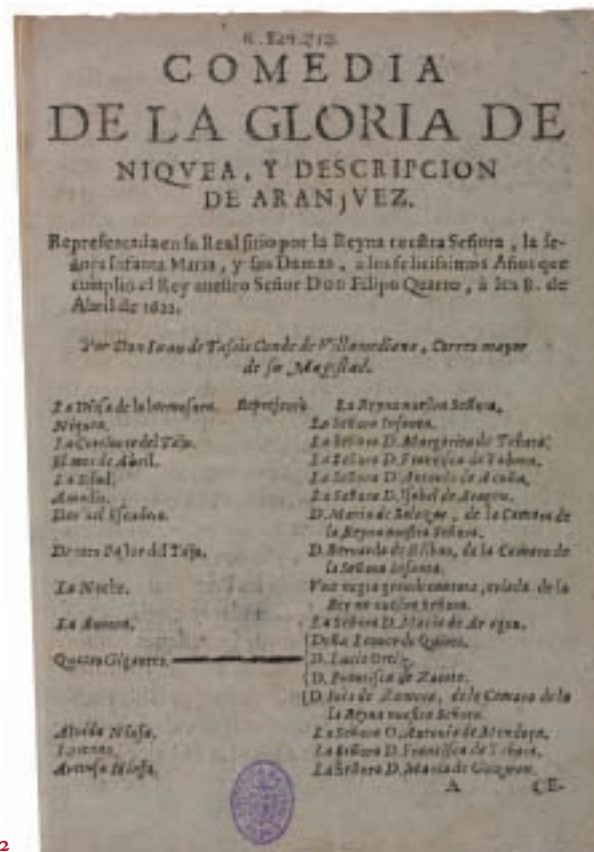 COMEDIA
DE LA GLORIA DE
NIQVEA, Y DESCRIPCION
DE ARANjVEZ.
Representada en su Real sitio por la Reyna nuestra Señora, la se-
ñora Infanta Maria, y sus Damas, a los felicissimos Años que
cumplio el Rey nuestro Señor Don Filipo Quarto, à los 8. de
Abril de 1622.
Por Don Iuan de Tassis Conde de Villamediana, Correo mayor
de su Magestad.
La Diosa de la hermosura. Represento La Reyna nuestra Señora.
Niquea. La Señora Infanta.
La Corriente del Tajo. La Señora D. Margarita de
El mes de Abril. La Señora D. Francisca de
La Edad. La Señora D. Antonia de Acuña.
Amadis. La Señora D. Ysabel de Aragon.
Escudero. D. Maria de Salazar, de la Camara de
la Reyna nuestra Señora.
Pastor del Tajo. D. Bernarda de Bilbao, de la Camara de
la Señora Infanta.
La Noche. Vna negra grande cantora, criada de la
Reyna nuestra Señora.
La Aurora. La Señora D. Maria de Aragon.
Doña Leonor de Quiros.
Quatro Gigantes. D. Lucia
D. Francisca de Zarate.
D. Ines de Zamora, de la Camara de la
la Reyna nuestra Señora.
Ninfa. La Señora D. Antonia de Mendoça.
La Señora D. Francisca de
Ninfa. La Señora D. Maria de Guzman.
A CE-
2